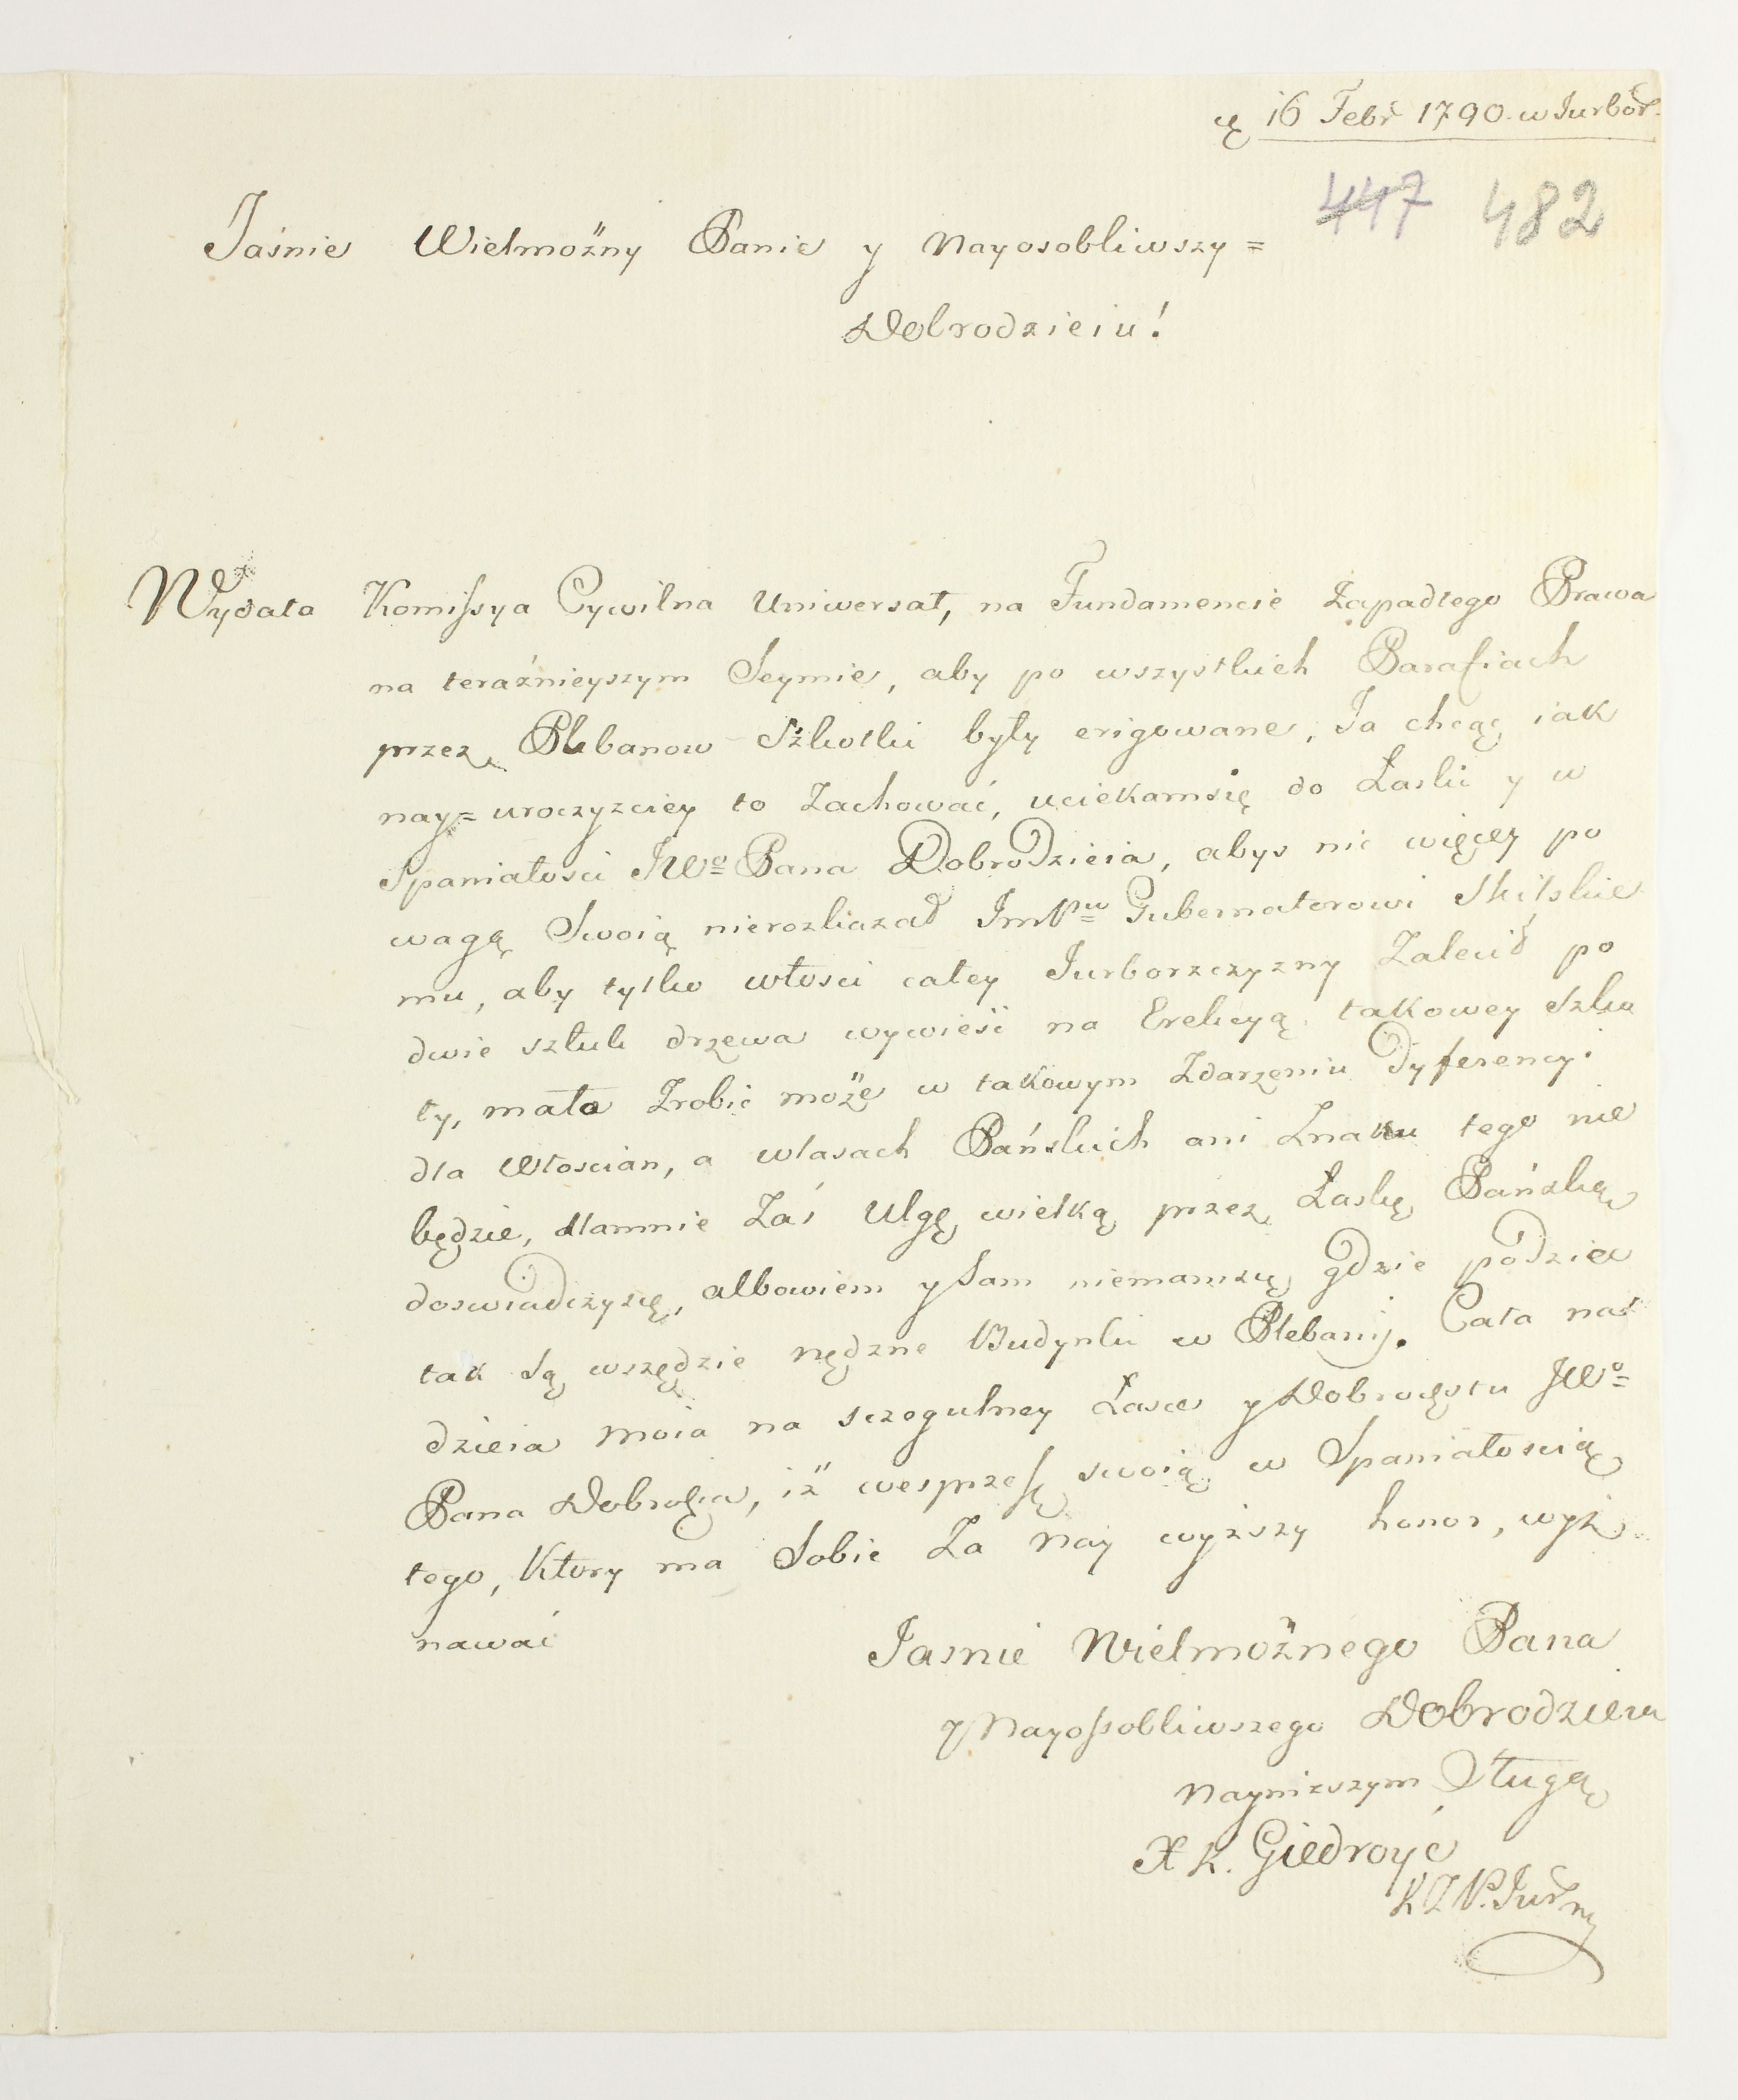 16 Febr 1790. w Jurbor.
447 482
Jaśnie Wielmożny Panie y Nayosobliwszy=
Dobrodzieiu!
Wydała Komissya Cywilna Uniwersał, na Fundamencie Zapadłego Prawa
na teraźnieyszym Seymie, aby po wszystkich Parafiach
przez Plebanow Szkołki były erigowane, Ja chcąc iak
nay=uroczyzciey to Zachować, uciekamsię do Łaski y w
Spaniałosci JWo Pana Dobrodzieia, abys nic więcey po
wagą Swoią nierozkazał ImPu Gubernatorowi Skilskie
mu, aby tylko włosci całey Jurborzczyzny Zalecił po
dwie sztuk drzewa wywieść na Erekcyą takowey szko
ły, mało Zrobić może w takowym Zdarzeniu Dyferencyi
dla Włoscian, a wlasach Pańskich ani Znaku tego nie
będzie, dlamnie Zaś Ulgę wielką przez Łaskę Pańską
doswiadczysię, albowiem y Sam niemamsię gdzie podziec
tak są wszędzie nędzne Budynki w Plebanij. Cała na
dzieia moia na sczegulney Łasce y Dobroczstu JWo
Pana Dobrodzia, iż wesprzesz swoią w Spaniałoscią
tego, Ktory ma Sobie Za Nay wyższy honor, wyz
nawać
Jasnie Wielmożnego Pana
y Nayossobliwszego Dobrodzieia
Nayniższym Sługą
X K. Giedroyć
K Z P. Jurny